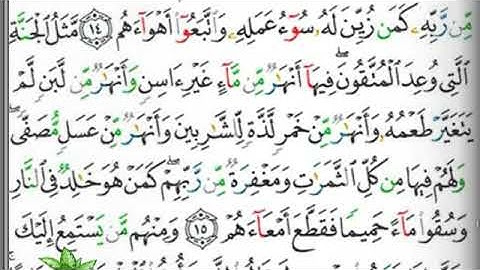 مِّن رَّبِّهِۦ كَمَن زُيِّنَ لَهُۥ سُوٓءُ عَمَلِهِۦ وَٱتَّبَعُوٓا۟ أَهْوَآءَهُم ١٤ مَّثَلُ ٱلْجَنَّةِ
ٱلَّتِى وُعِدَ ٱلْمُتَّقُونَ ۖ فِيهَآ أَنْهَـٰرٌ مِّن مَّآءٍ غَيْرِ ءَاسِنٍ وَأَنْهَـٰرٌ مِّن لَّبَنٍ لَّمْ
يَتَغَيَّرْ طَعْمُهُۥ وَأَنْهَـٰرٌ مِّنْ خَمْرٍ لَّذَّةٍ لِّلشَّـٰرِبِينَ وَأَنْهَـٰرٌ مِّنْ عَسَلٍ مُّصَفًّى ۖ
وَلَهُمْ فِيهَا مِن كُلِّ ٱلثَّمَرَٰتِ وَمَغْفِرَةٌ مِّن رَّبِّهِمْ ۖ كَمَنْ هُوَ خَـٰلِدٌ فِى ٱلنَّارِ
وَسُقُوا۟ مَآءً حَمِيمًا فَقَطَّعَ أَمْعَآءَهُمْ ١٥ وَمِنْهُم مَّن يَسْتَمِعُ إِلَيْكَ